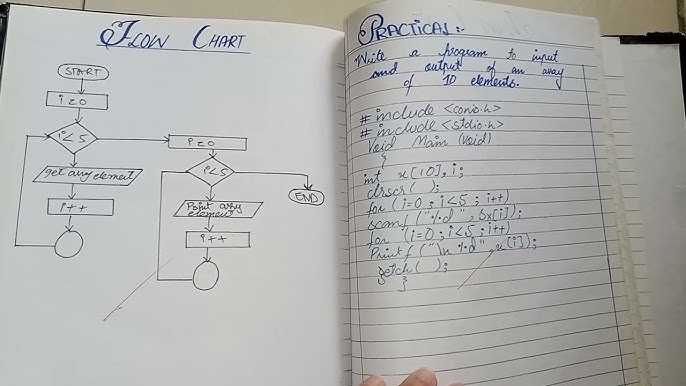 FLOW CHART
START
i=0
i<5
get array element
i++
i=0
i<5
Print array
element
i++
END
PRACTICAL:-
Write a program to input
and output of an array
of 10 elements.
# include <conio.h>
# include <stdio.h>
Void Main (void)
{
int x[10], i;
clrscr( );
for (i=0 ; i<5 ; i++)
scanf ("%d", &x[i]);
for (i=0 ; i<5 ; i++)
Printf ("\n %d", x[i]);
getch( );
}